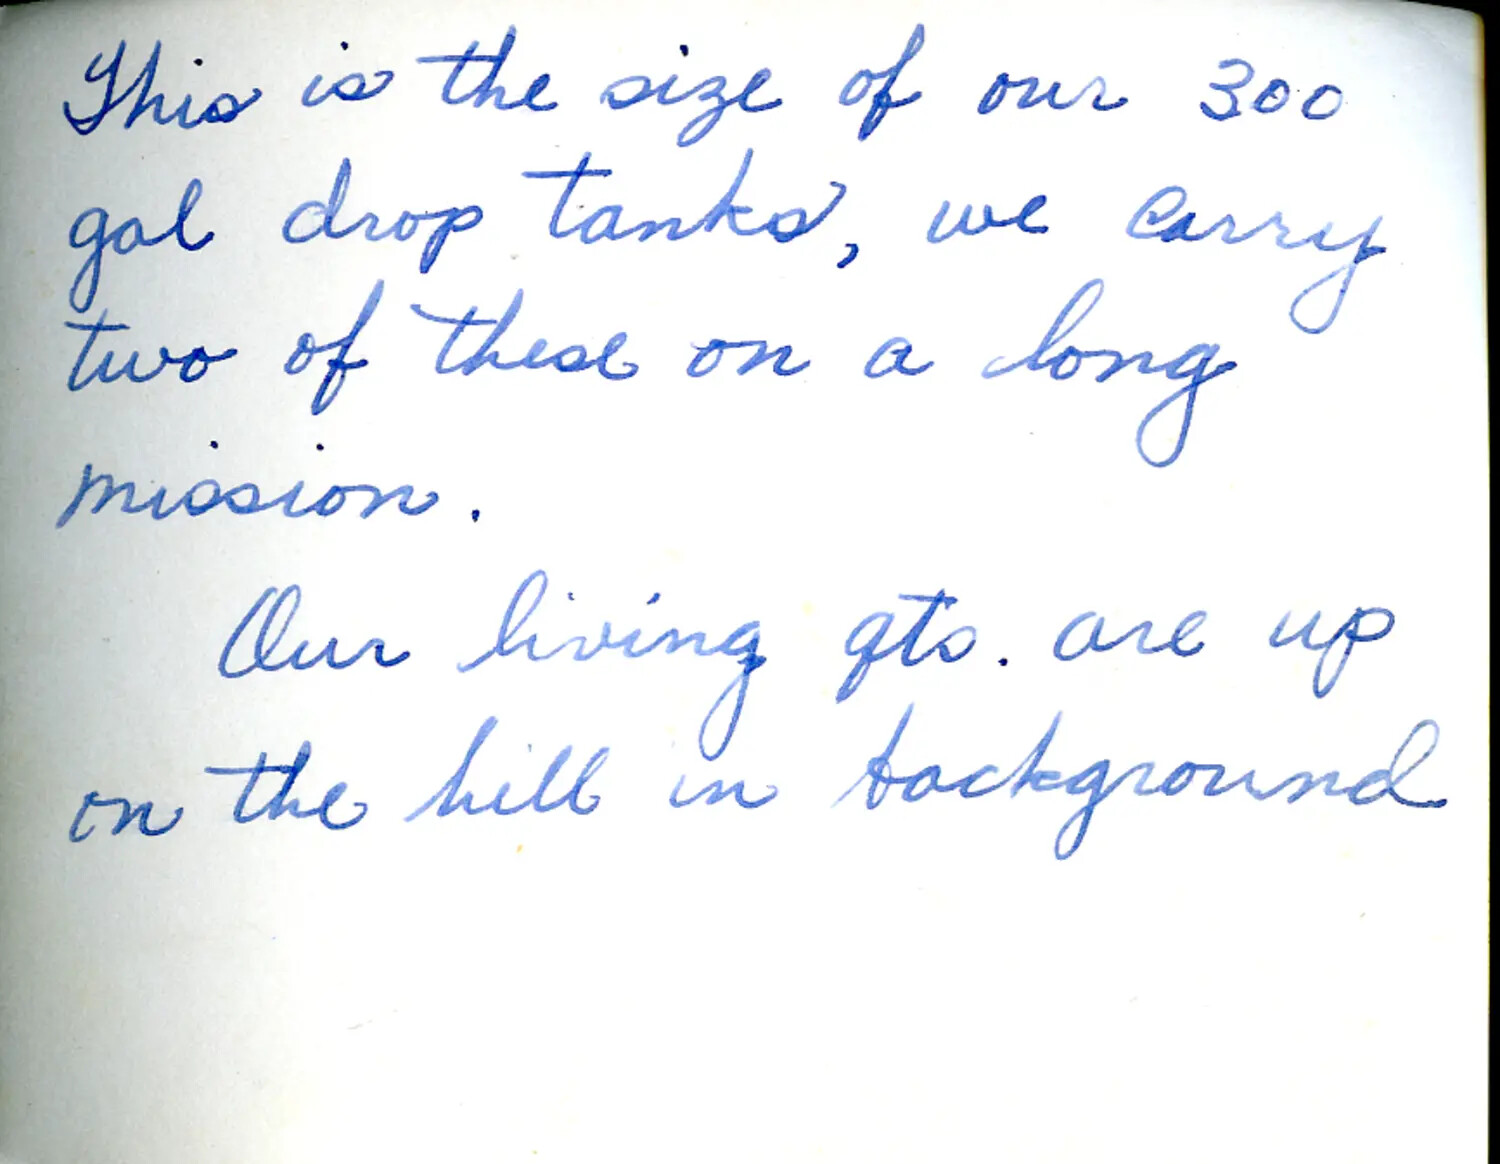 This is the size of our 300
gal drop tanks, we carry
two of these on a long
mission.
Our living qts. are up
on the hill in background